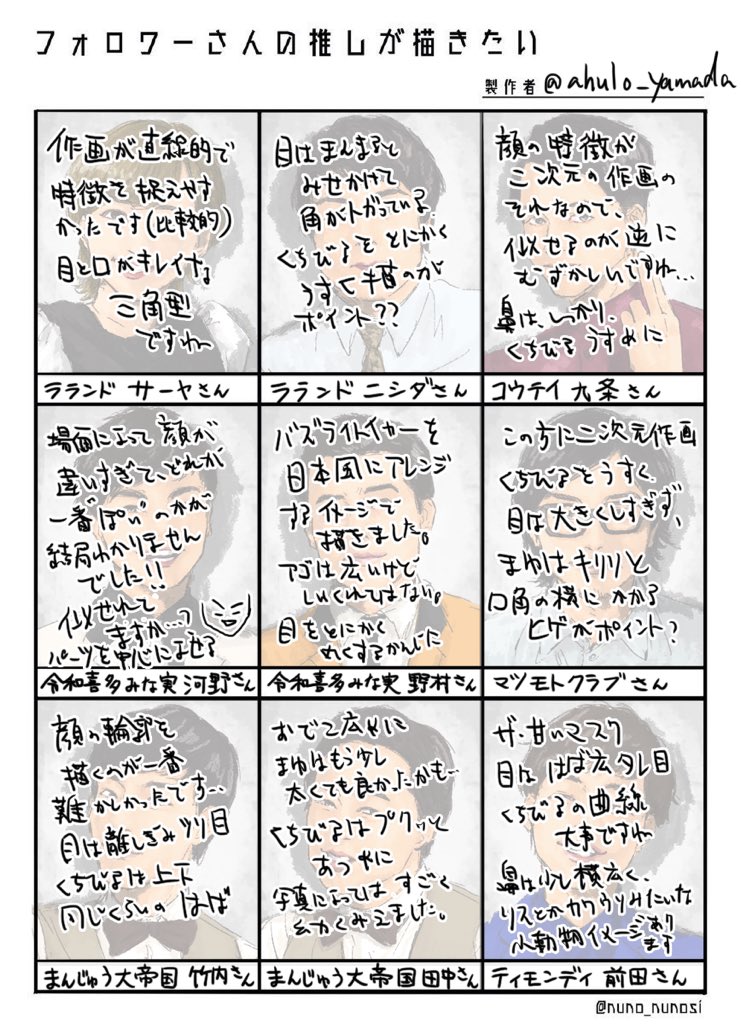 フォロワーさんの推しが描きたい
製作者 @ahulo_yamada
作画が直線的で
特徴を捉えやす
かったです(比較的)
目と口がキレイな
三角型
ですわ〜
ラランド サーヤさん
目はまんまると
みせかけて
角がトガっている。
くちびるをとにかく
うすく描くのが
ポイント??
ラランド ニシダさん
顔の特徴が
二次元の作画の
それなので、
似せるのが逆に
むずかしいですわ…
鼻は、しっかり、
くちびるうすめに
コウテイ 九条さん
場面によって顔が
違いすぎて、どれが
一番“ぽい”のかが
結局わかりません
でした!!
似せれて
ますか…?
パーツを中心によせる
令和喜多みな実 河野さん
バズライトイヤーを
日本風にアレンジ
するイメージで
描きました。
アゴは広いけど
しゃくれてはない。
目をとにかく
丸くするかんじた
令和喜多みな実 野村さん
この方に二次元作画
くちびるをうすく、
目は大きくしすぎず、
まゆはキリリと
口角の横にかかる
ヒゲがポイント?
マツモトクラブさん
顔の輪郭を
描くのが一番
難かしかったです…
目は離しぎみツリ目
くちびるは上下
同じくらいのはば
まんじゅう大帝国 竹内さん
おでこ広めに
まゆはもう少し
太くても良かったかも…
くちびるはプクッと
あつめに
写真によってはすごく
細かくみえました。
まんじゅう大帝国 田中さん
ザ・甘いマスク
目ははば広タレ目
くちびるの曲線
大事ですわ
鼻は少し横広く、
リスとかカワウソみたいな
小動物イメージあり
ます
ティモンディ 前田さん
@nuno_nunosi